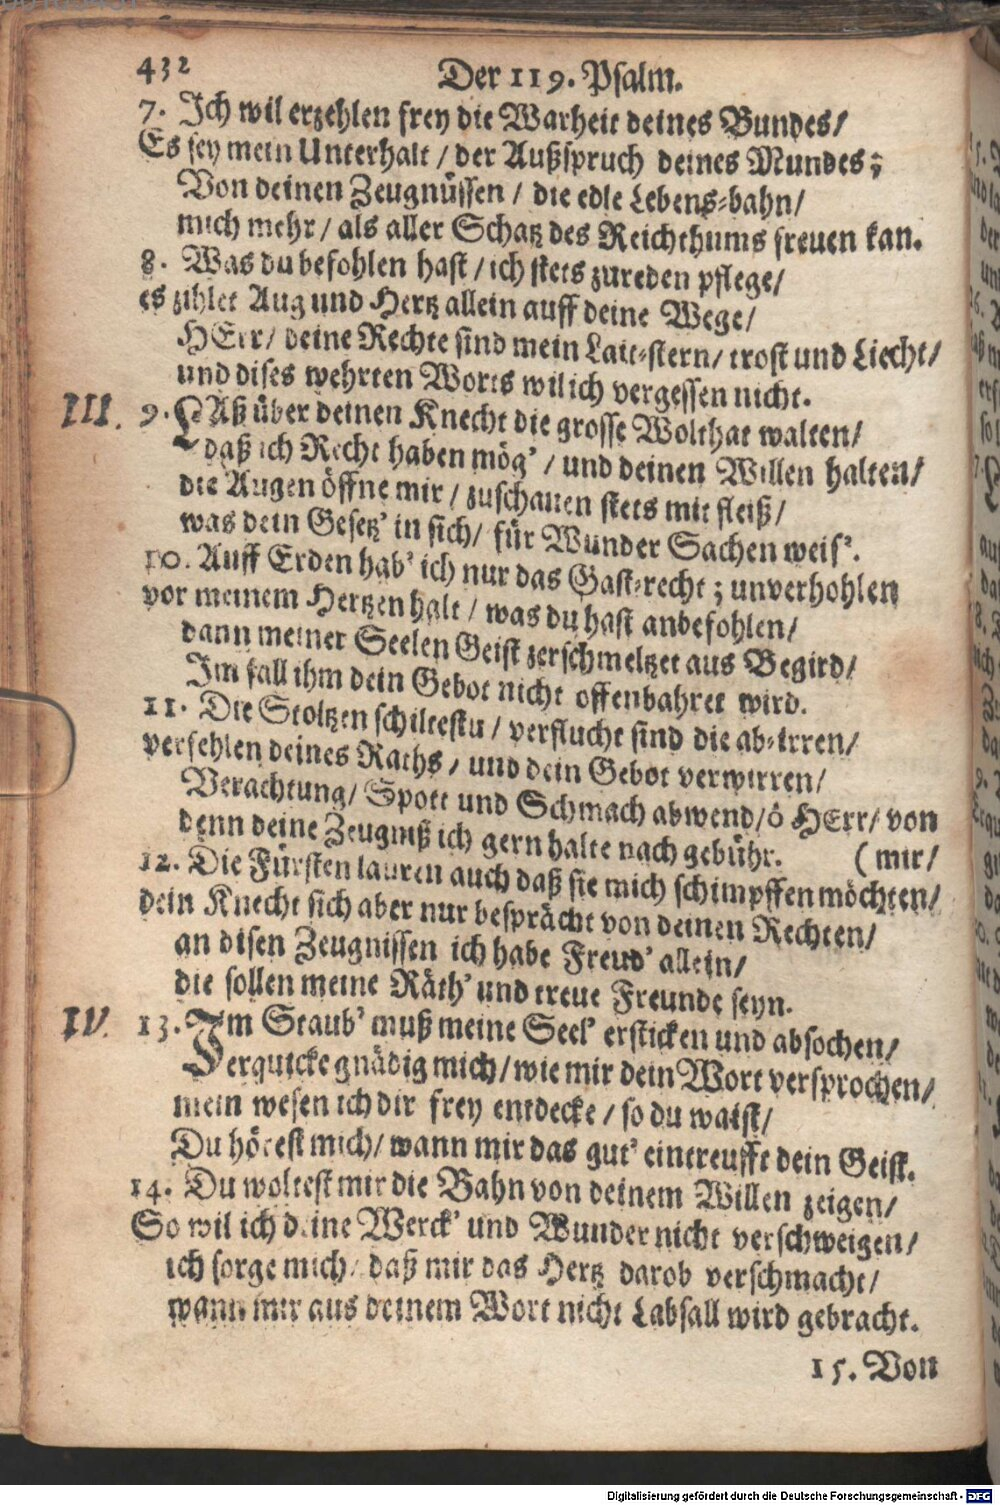 432
Der 119. Psalm.
7. Ich wil erzehlen frey die Warheit deines Bundes/
Es sey mein Unterhalt / der Außspruch deines Mundes;
Von deinen Zeugnüssen / die edle Lebens-bahn/
mich mehr / als aller Schatz des Reichthums freuen kan.
8. Was du befohlen hast / ich stets zureden pflege/
es zihlet Aug und Hertz allein auff deine Wege/
HErr/ deine Rechte sind mein Lait-stern/ trost und Liecht/
und dises wehrten Worts wil ich vergessen nicht.
III. 9. LAß über deinen Knecht die grosse Wolthat walten/
daß ich Recht haben mög' / und deinen Willen halten/
die Augen öffne mir / zuschauen stets mit fleiß/
was dein Gesetz' in sich/ für Wunder Sachen weis'.
10. Auff Erden hab' ich nur das Gast-recht; unverhohlen
vor meinem Hertzen halt / was du hast anbefohlen/
dann meiner Seelen Geist zerschmeltzet aus Begird/
Im fall ihm dein Gebot nicht offenbahret wird.
11. Die Stoltzen schiltestu / verflucht sind die ab-irren/
verfehlen deines Raths / und dein Gebot verwirren/
Verachtung/ Spott und Schmach abwend/ ô HErr/ von
denn deine Zeugniß ich gern halte nach gebühr. (mir/
12. Die Fürsten lauren auch daß sie mich schimpffen möchten/
dein Knecht sich aber nur bespräche von deinen Rechten/
an disen Zeugnissen ich habe Freud' allein/
die sollen meine Räth' und treue Freunde seyn.
IV. 13. Im Staub' muß meine Seel' ersticken und absochen/
erquicke gnädig mich/ wie mir dein Wort versprochen/
mein wesen ich dir frey entdecke / so du waist/
Du hörest mich/ wann mir das gut' eintreufft dein Geist.
14. Du woltest mir die Bahn von deinem Willen zeigen/
So wil ich deine Werck' und Wunder nicht verschweigen/
ich sorge mich/ daß mir das Hertz darob verschmacht/
wann mir aus deinem Wort nicht Labsall wird gebracht.
15. Von
Digitalisierung gefördert durch die Deutsche Forschungsgemeinschaft - DFG